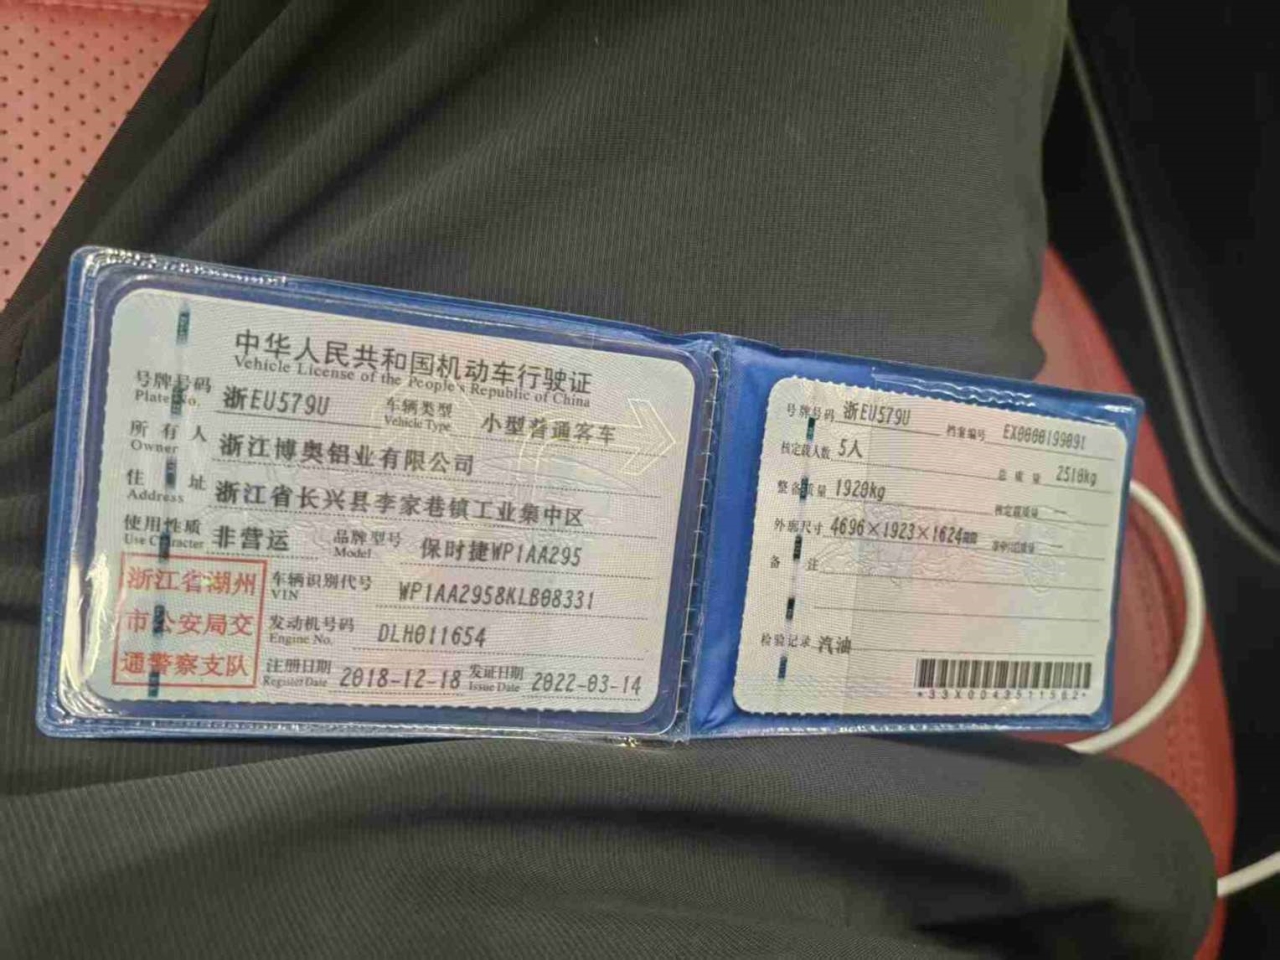 中华人民共和国机动车行驶证
Vehicle License of the People's Republic of China
号牌号码 浙EU579U 车辆类型 小型普通客车
Plate No. Vehicle Type
所有人 浙江博奥铝业有限公司
Owner
住址 浙江省长兴县李家巷镇工业集中区
Address
使用性质 非营运 品牌型号 保时捷WP1AA295
Use Character Model
浙江省湖州
市公安局交
通警察支队
车辆识别代号 WP1AA2958KLB08331
VIN
发动机号码 DLH011654
Engine No.
注册日期 2018-12-18 发证日期 2022-03-14
Register Date Issue Date
号牌号码 浙EU579U 档案编号 EX0000199091
核定载人数 5人 总质量 2510kg
整备质量 1920kg 核定载质量 —
外廓尺寸 4696×1923×1624mm —
备注
检验记录 汽油